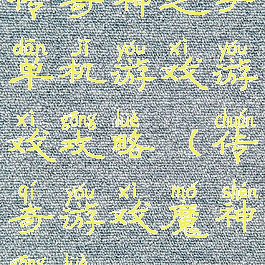 传奇神之手
dān jī yóu xì yóu
单机游戏游
xì gōng lüè chuán
戏攻略（传
qí yóu xì mó shén
奇游戏魔神
gōng lüè